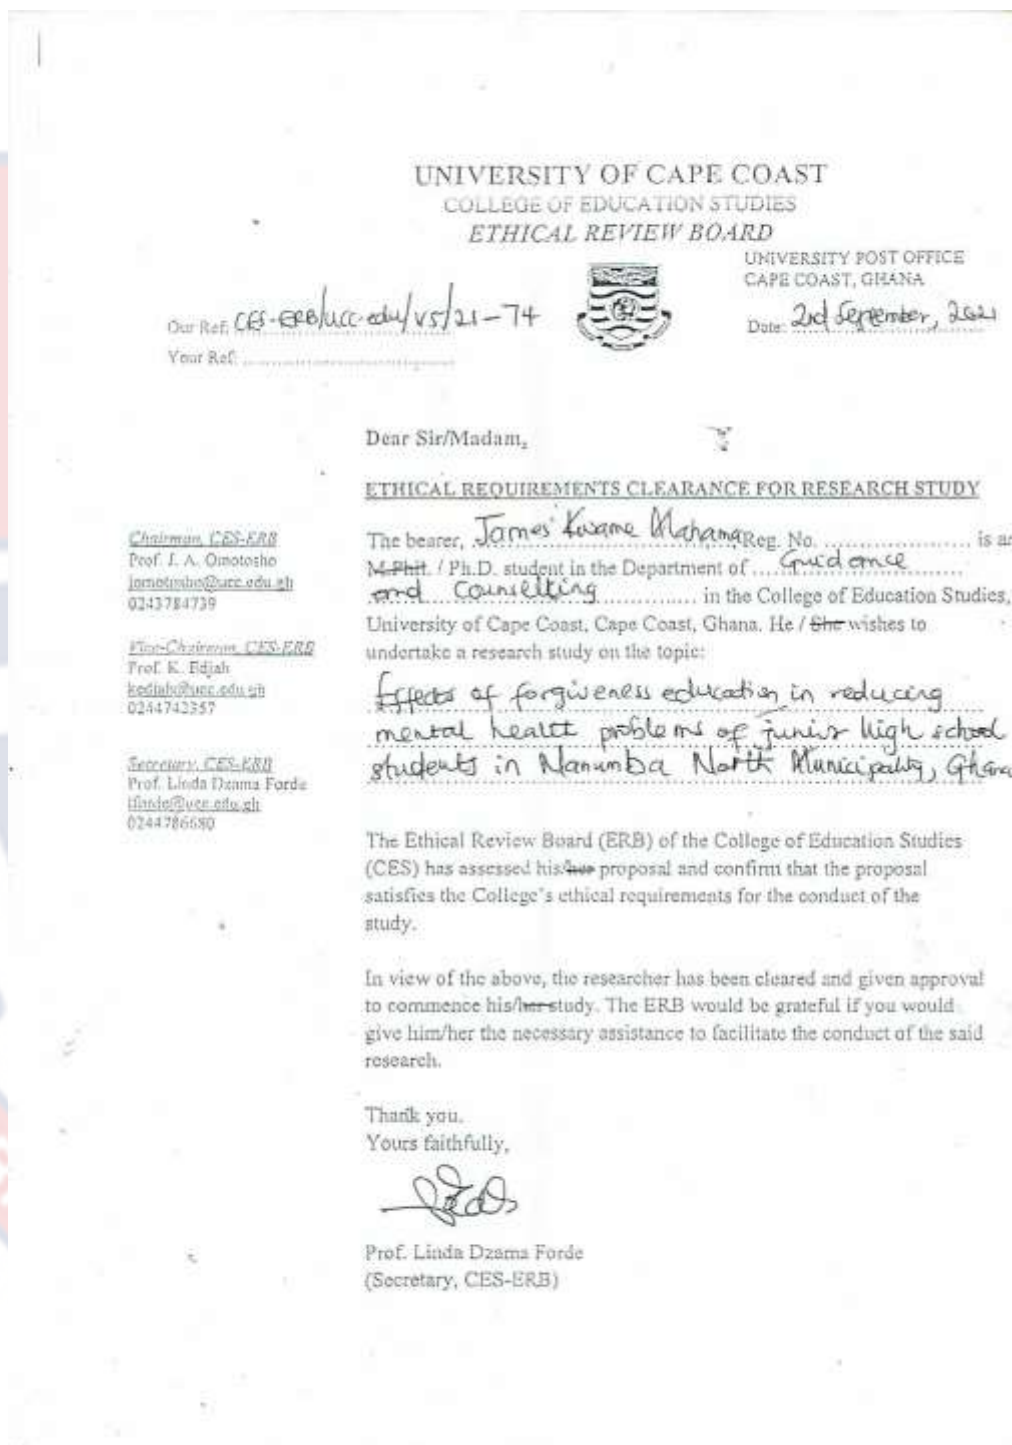 UNIVERSITY OF CAPE COAST
COLLEGE OF EDUCATION STUDIES
ETHICAL REVIEW BOARD
UNIVERSITY POST OFFICE
CAPE COAST, GHANA
Our Ref: CES-ERB/ucc.edu/V5/21-74
Date: 2nd September, 2021
Your Ref:
Dear Sir/Madam,
ETHICAL REQUIREMENTS CLEARANCE FOR RESEARCH STUDY
Chairman, CES-ERB
Prof. J. A. Omotosho
jomotosho@ucc.edu.gh
0243784739
Vice-Chairman, CES-ERB
Prof. K. Edjah
kedjah@ucc.edu.gh
0244742357
Secretary, CES-ERB
Prof. Linda Dzama Forde
lforde@ucc.edu.gh
0244786680
The bearer, James Kwame Mahama Reg. No. is an
M.Phil. / Ph.D. student in the Department of Guidance
and Counselling in the College of Education Studies,
University of Cape Coast, Cape Coast, Ghana. He / She wishes to
undertake a research study on the topic:
Effects of forgiveness education in reducing
mental health problems of junior high school
students in Nanumba North Municipality, Ghana
The Ethical Review Board (ERB) of the College of Education Studies
(CES) has assessed his/her proposal and confirm that the proposal
satisfies the College's ethical requirements for the conduct of the
study.
In view of the above, the researcher has been cleared and given approval
to commence his/her study. The ERB would be grateful if you would
give him/her the necessary assistance to facilitate the conduct of the said
research.
Thank you.
Yours faithfully,
Prof. Linda Dzama Forde
(Secretary, CES-ERB)